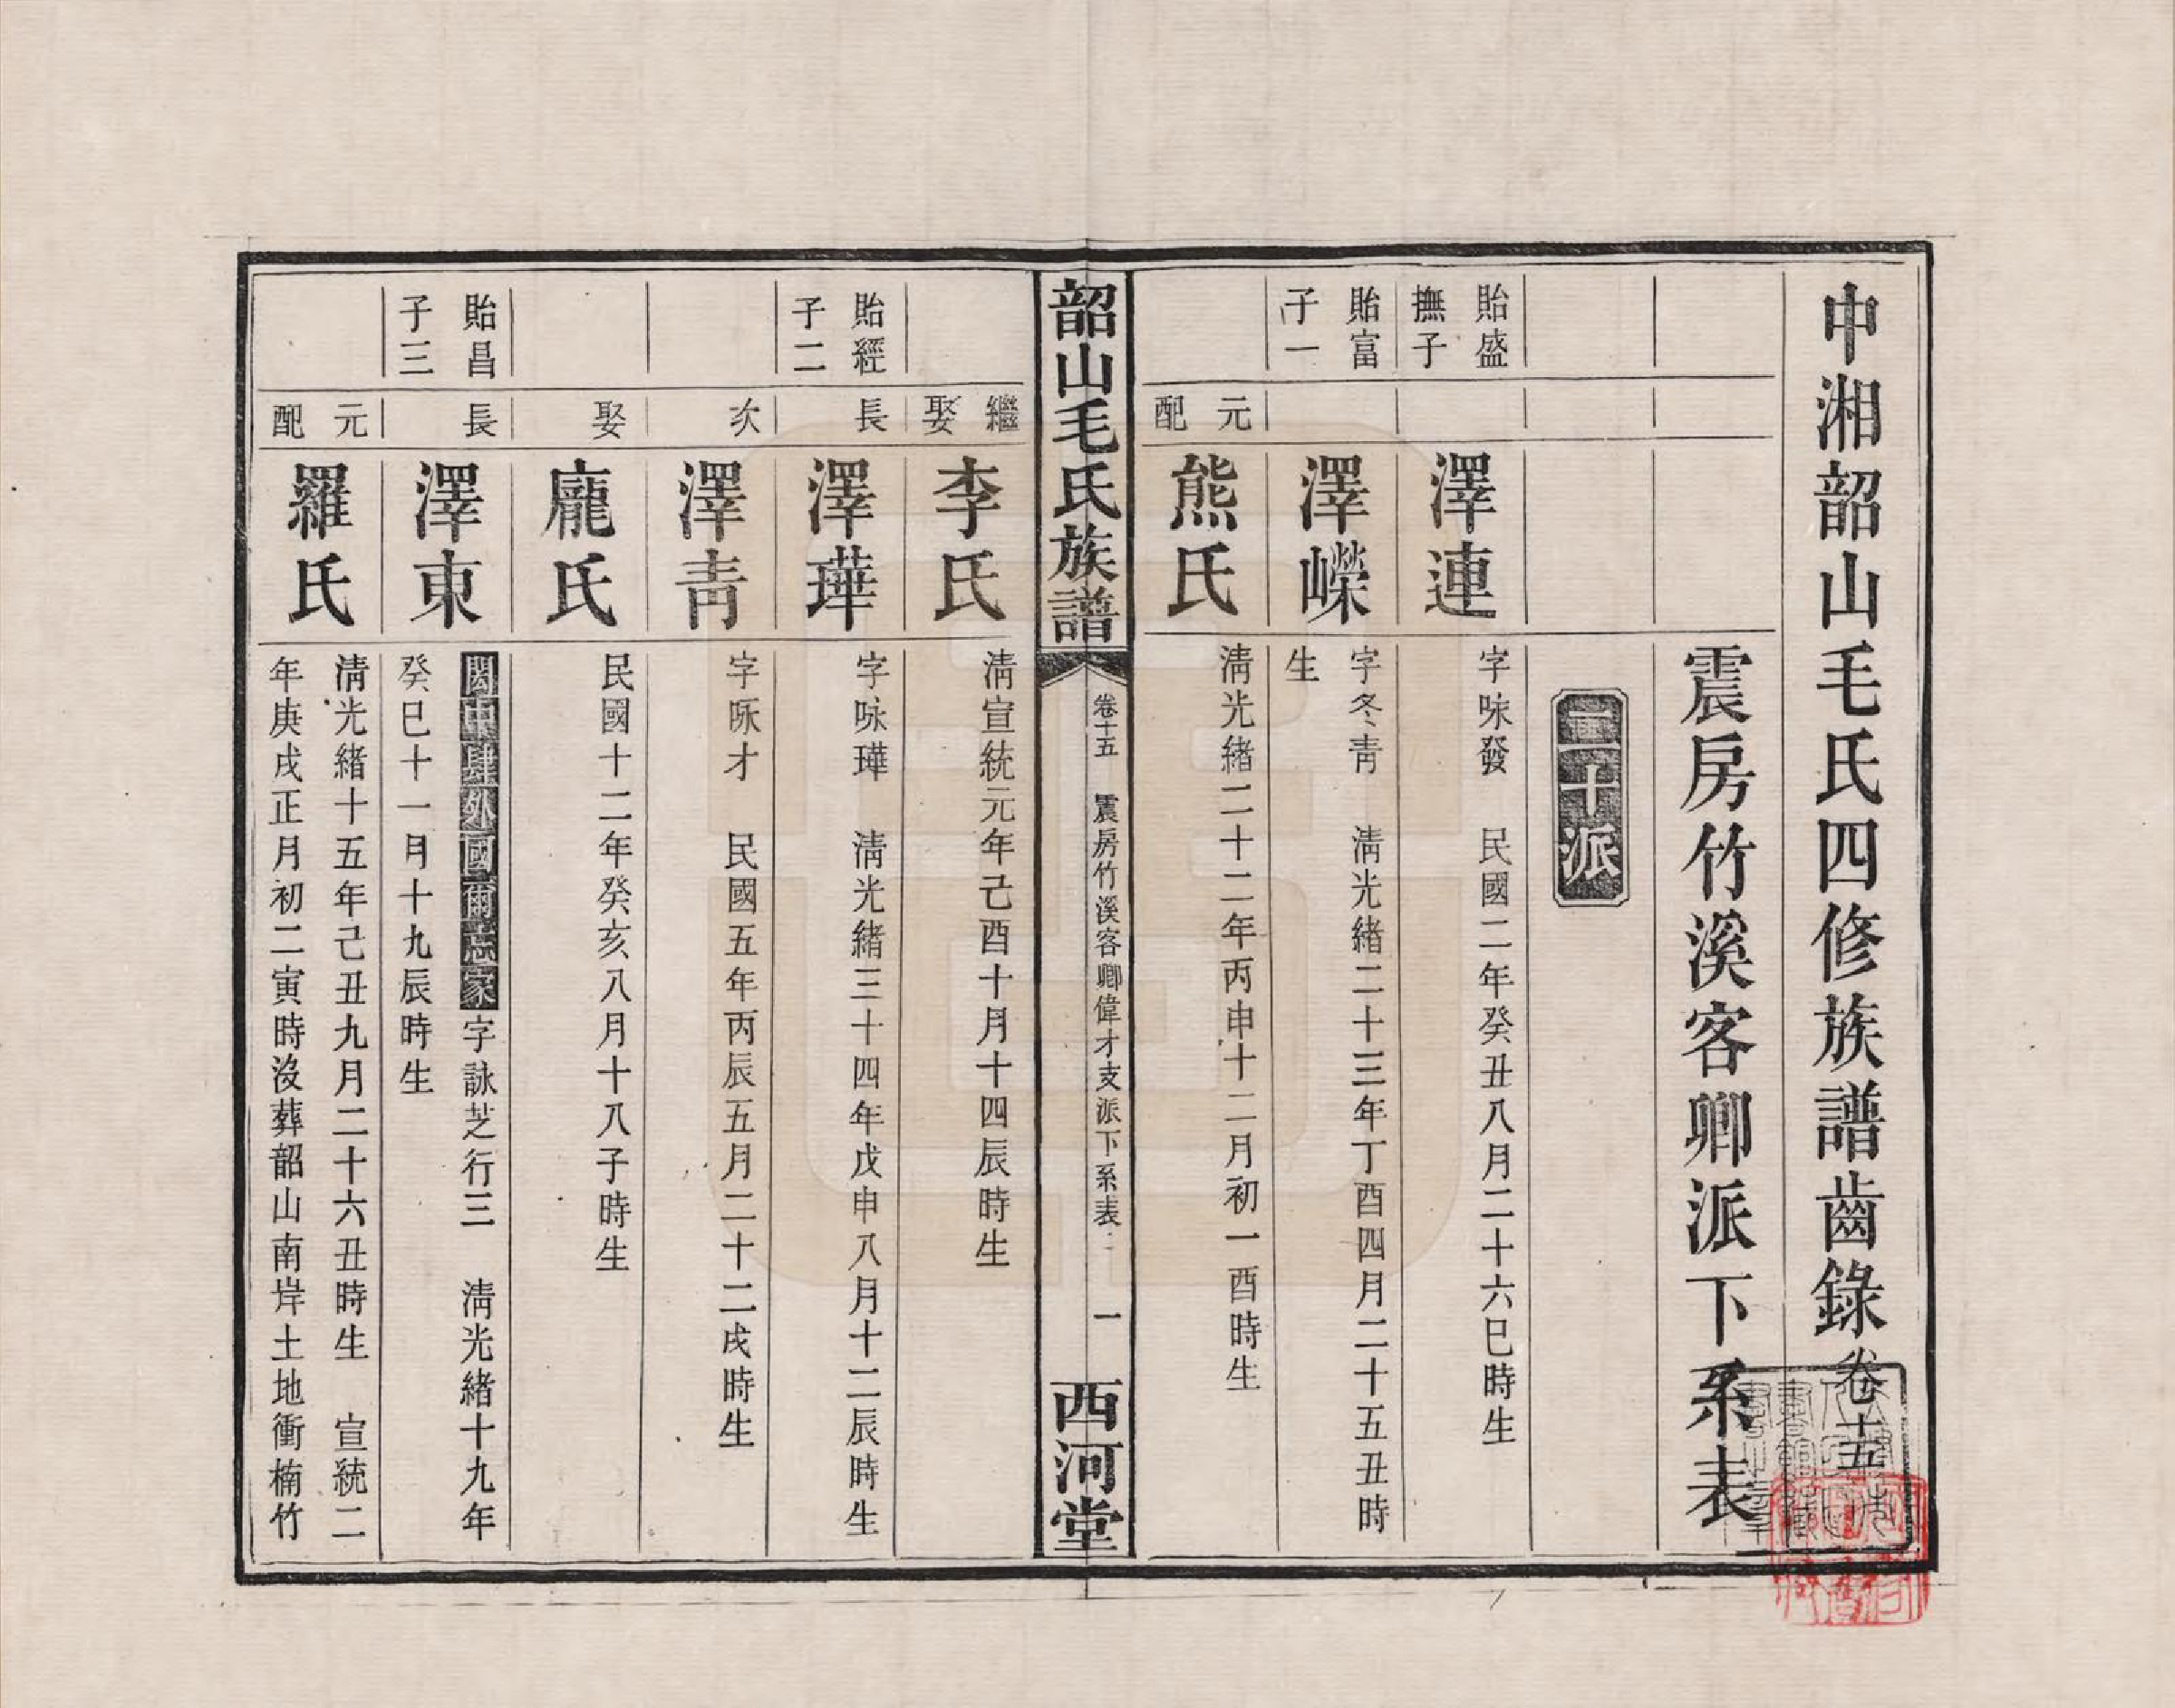 中湘韶山毛氏四修族譜齒錄卷十五
震房竹溪客卿派下系表
二十派
貽盛
撫子
澤連
字咏發 民國二年癸丑八月二十六巳時生
貽富
子一
澤嶸
字冬青 清光緒二十三年丁酉四月二十五丑時
生
元
配
熊氏
清光緒二十二年丙申十二月初一酉時生
韶山毛氏族譜
卷十五 震房竹溪客卿偉才支派下系表 一
西河堂
繼
娶
李氏
清宣統元年己酉十月十四辰時生
貽經
子二
長
澤璍
字咏璍 清光緒三十四年戊申八月十二辰時生
次
澤青
字咏才 民國五年丙辰五月二十二戌時生
娶
龐氏
民國十二年癸亥八月十八子時生
貽昌
子三
長
澤東
閎中肆外國爾忘家字詠芝行三 清光緒十九年
癸巳十一月十九辰時生
元
配
羅氏
清光緒十五年己丑九月二十六丑時生 宣統二
年庚戌正月初二寅時沒葬韶山南岸土地衝楠竹